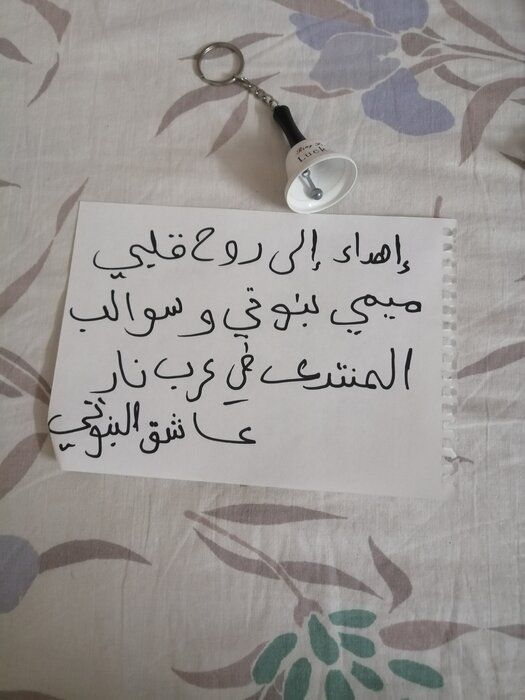 Ring for
Luck
إهداء إلى روح قلبي
ميمي بنوتي وسوالب
المنتدى في عرب نار
عاشق البنوتي